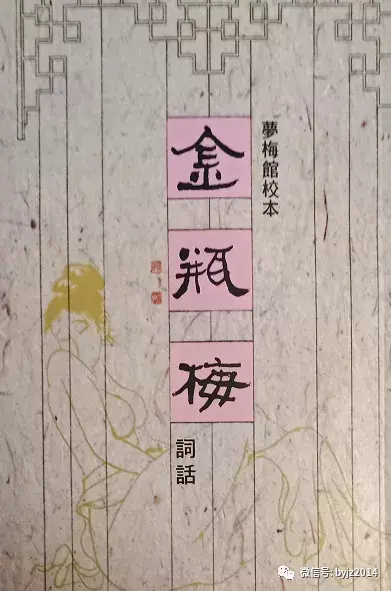 夢梅館校本
金
瓶
梅
詞話
微信号: byjz2014